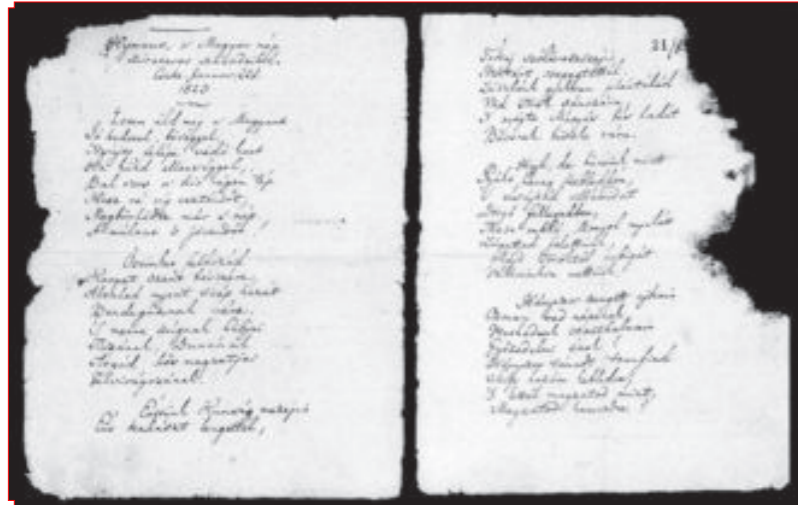 Hymnus, a' Magyar nép
zivataros századaiból.
Cseke, Januar. 22d.
1823
Isten áldd meg a Magyart
Jó kedvvel, bőséggel,
Nyujts feléje védő kart
Ha küzd ellenséggel,
Bal sors a' kit régen tép
Hozz rá víg esztendőt,
Megbünhödte már e nép
A multat 's jövendőt
Őseinket felhozád
Kárpát szent bérczére,
Általad nyert szép hazát
Bendegúznak vére.
'S merre zúgnak habjai
Tiszának, Dunának
Árpád hős magzatjai
Felvirágozának.
Értünk Kunság mezején
Ért kalászt lengettél,
21/
Tokaj szőlővesszein
Nektárt csepegtettél.
Zászlónk gyakran plántálád
Vad török sáncára,
'S nyögte Mátyás bús hadát
Bécsnek büszke vára.
Hajh, de bűneink miatt
Gyúlt harag kebledben,
'S elsújtád villámidat
Dörgő fellegedben,
Most rabló Mongol nyilát
Zúgattad felettünk,
Majd töröktől rabigát
Vállainkra vettünk.
Hányszor zengett ajkain
Ozman vad népének
Vert hadunk csonthalmain
Győzedelmi ének!
Hányszor támadt tenfiad
Szép hazám kebledre,
'S lettél magzatod miatt,
Magzatod hamvedre